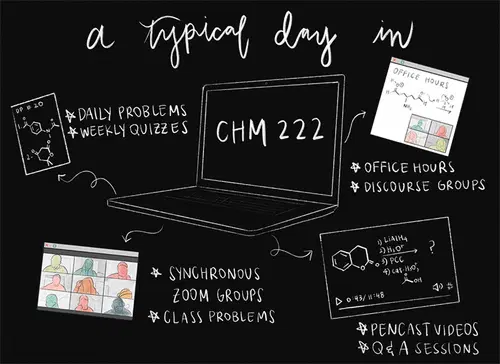 a typical day in
DP # 20
1.
2.
☆ DAILY PROBLEMS
☆ WEEKLY QUIZZES
CHM 222
OFFICE HOURS
NH₂
☆ OFFICE HOURS
☆ DISCOURSE GROUPS
☆ SYNCHRONOUS
ZOOM GROUPS
☆ CLASS PROBLEMS
1) LiAlH₄
2) H₃O⁺
3) PCC
?
▷ 0:43/11:48
☆ PENCAST VIDEOS
☆ Q & A SESSIONS